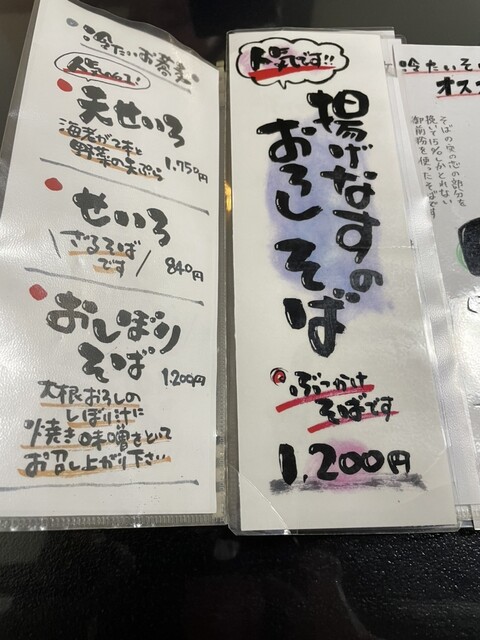 冷たいお蕎麦
人気No.1!
天せいろ
海老が2本と
野菜の天ぷら
1,750円
せいろ
ざるそば
です
840円
おしぼり
そば
1,200円
大根おろしの
しぼり汁に
焼き味噌をといて
お召し上がり下さい
人気です!!
揚げなすの
おろしそば
ぶっかけ
そばです
1,200円
冷たいそ
オス
そばの実の芯の部分を
挽いて15%しかとれない
御前粉を使ったそばです